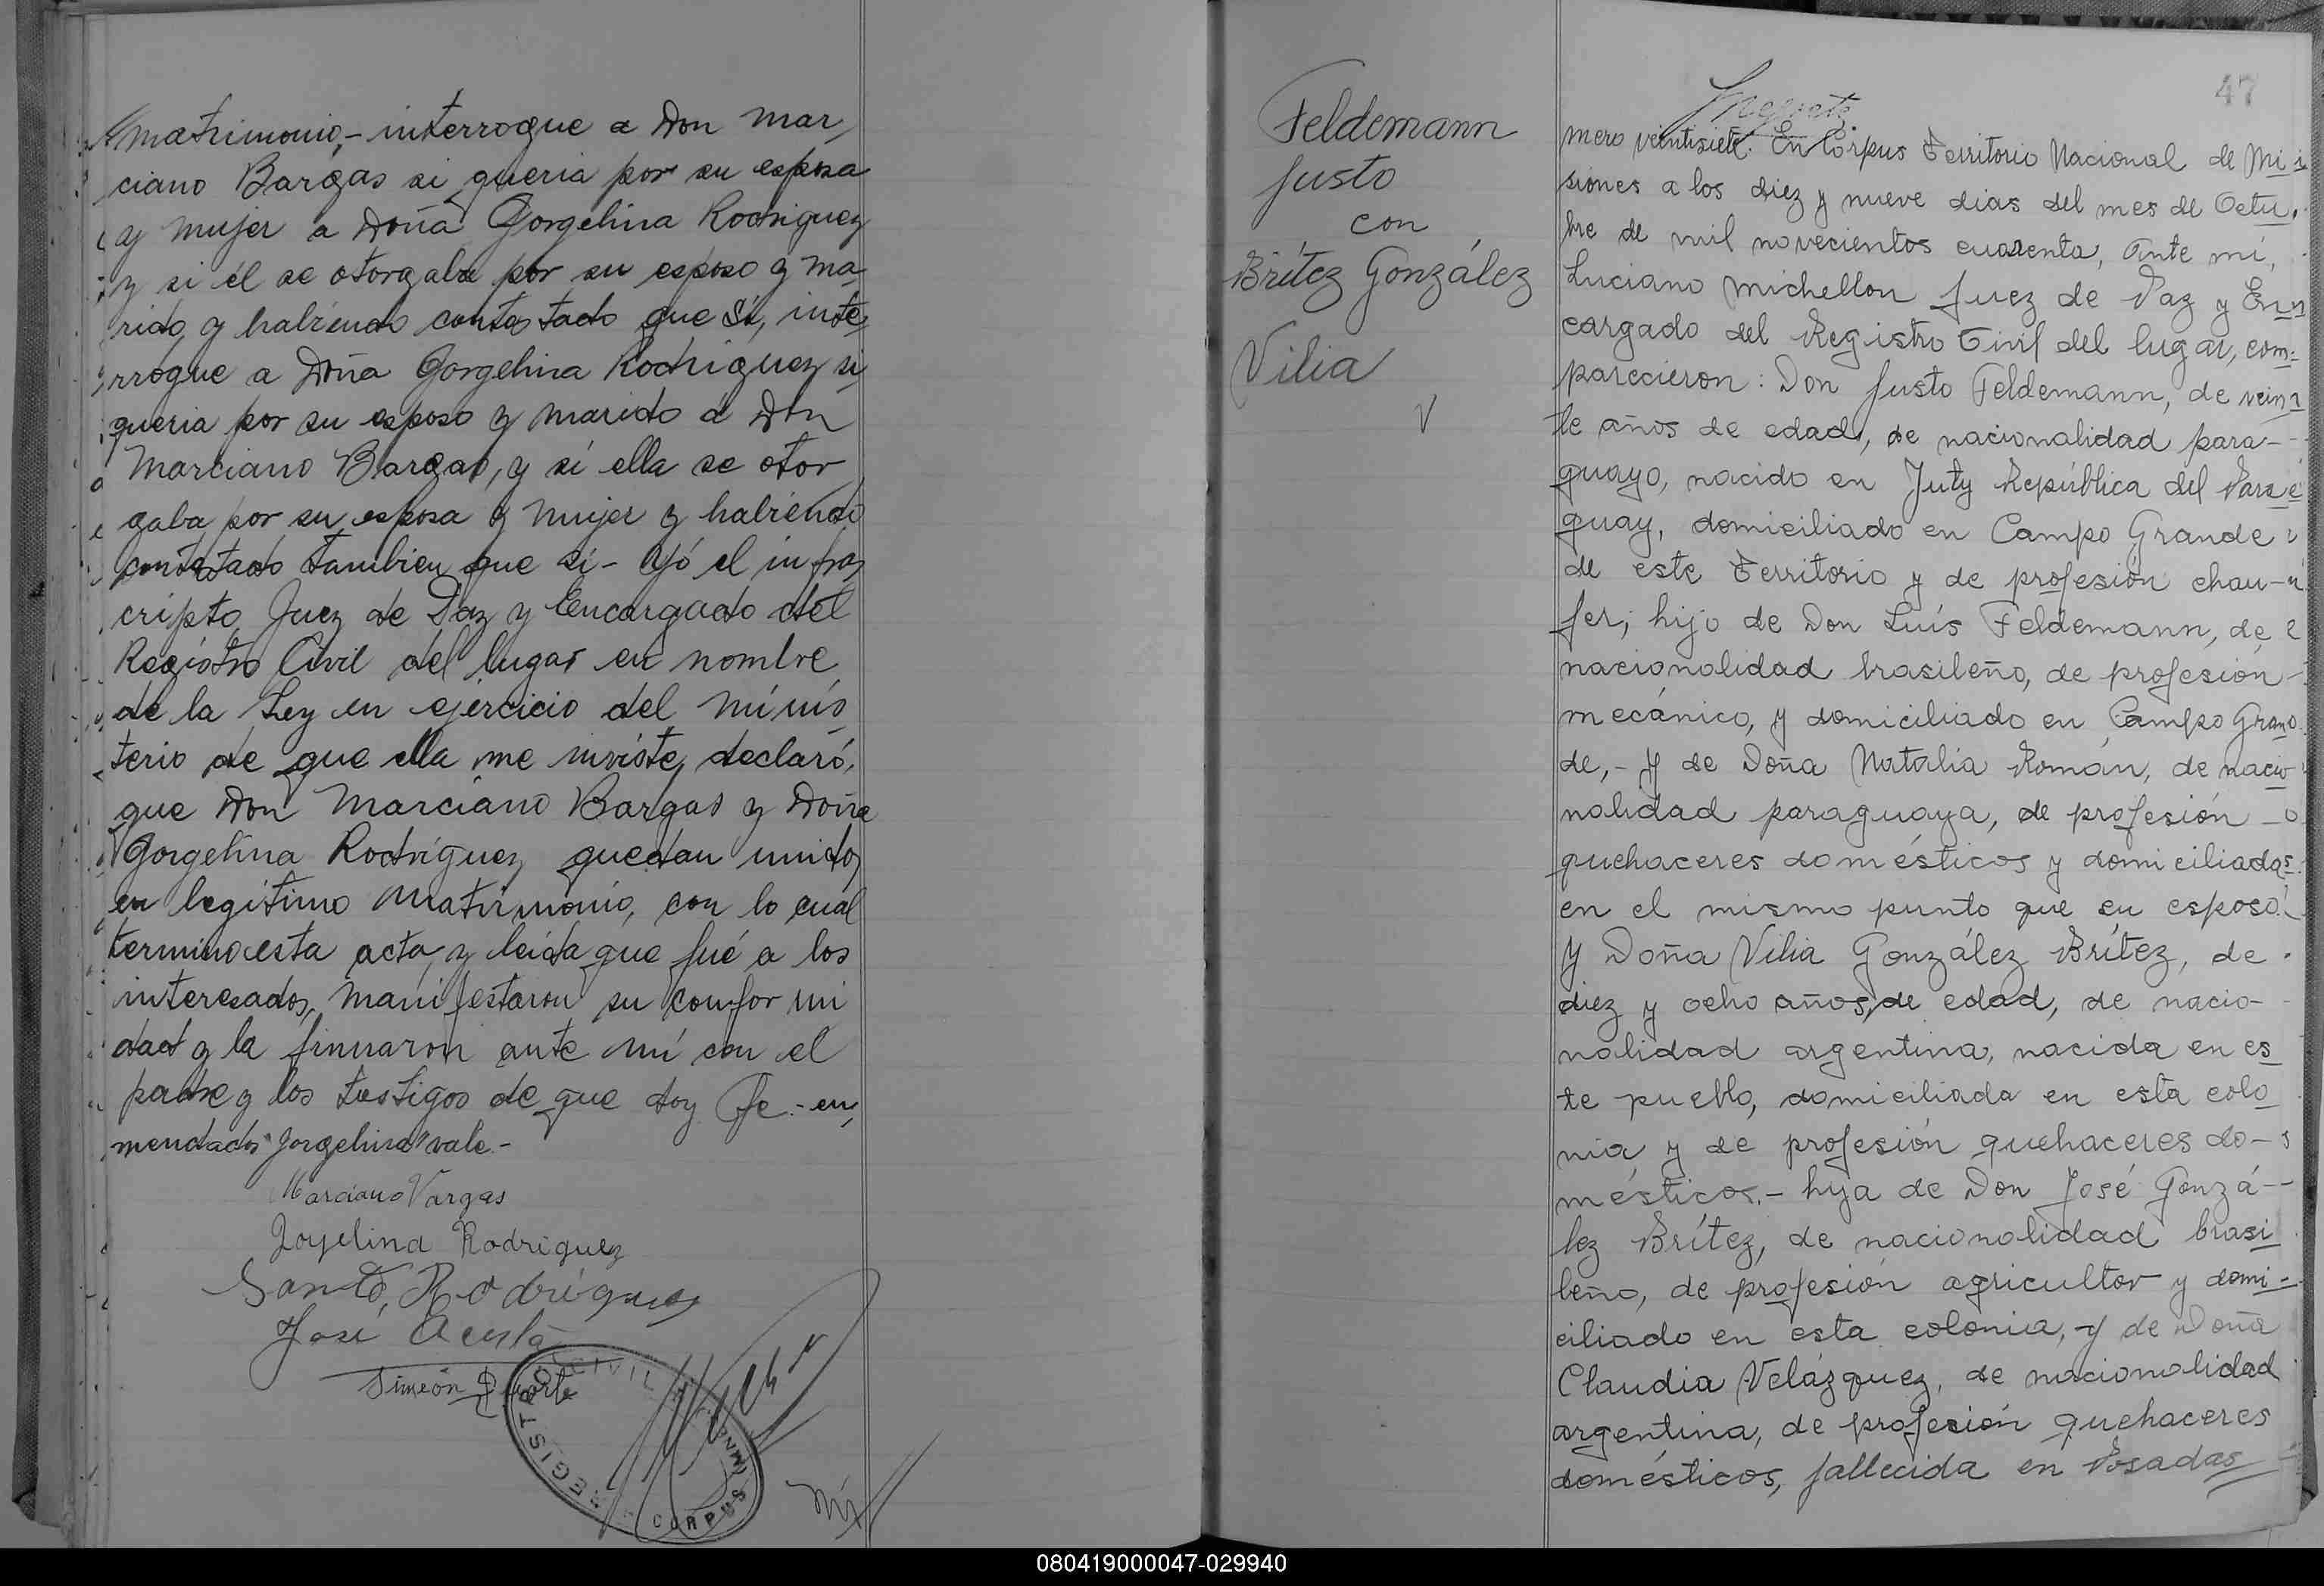 matrimonio,- interrogue a Don Mar
ciano Bargas si queria por su esposa
y mujer a Doña Gorgelina Rodriguez
y si él se otorgaba por su esposo y ma
rido, y habiendo contestado que Sí, inte
rrogue a Doña Gorgelina Rodriguez si
queria por su esposo y marido a Don
Marciano Bargas, y si ella se otor
gaba por su esposa y mujer y habiendo
contestado tambien que si - Yó el infras
cripto Juez de Paz y Encargado del
Registro Civil del lugar en nombre
de la Ley en ejercicio del minis
terio de que ella me inviste, declaró,
que Don Marciano Bargas y Doña
Gorgelina Rodríguez quedan unidos
en legítimo Matrimonio, con lo cual
termino esta acta, y leída que fué a los
interesados, manifestaron su conformi
dad y la firmaron ante mí con el
padre y los testigos de que doy fe.- en,
mendado "Jorgelina" vale.-
Marciano Vargas
Joyelina Rodriguez
Santo, Rodriguez
José Acosta
Simeón Duarte
REGISTRO CIVIL
CORPUS (MNES)
47
Feldemann
Justo
con
Brítez González
Vilia
V
mero veintisiete. En Corpus Territorio Nacional de Mi
siones a los diez y nueve dias del mes de Octu,
bre de mil novecientos cuarenta, Ante mi,
Luciano Michellon Juez de Paz y En
cargado del Registro Civil del lugar, com=
parecieron: Don Justo Feldemann, de vein
te años de edad, de nacionalidad para-
guayo, nacido en Yuty República del Para
guay, domiciliado en Campo Grande
de este Territorio y de profesión chau-
fer, hijo de Don Luís Feldemann, de
nacionalidad brasileño, de profesión
mecánico, y domiciliado en Campo Gran
de,- y de Doña Natalia Román, de nacio
nalidad paraguaya, de profesión -
quehaceres domésticos y domiciliados
en el mismo punto que su esposo.
Y Doña Vilia González Brítez, de
diez y ocho años, de edad, de nacio-
nalidad argentina, nacida en es
te pueblo, domiciliada en esta colo
nia y de profesión quehaceres do-
mésticos.- hija de Don José Gonzá-
lez Brítez, de nacionalidad brasi
leño, de profesión agricultor y domi-
ciliado en esta colonia, y de Doña
Claudia Velázquez, de nacionalidad
argentina, de profesión quehaceres
domésticos, fallecida en Posadas
080419000047-029940